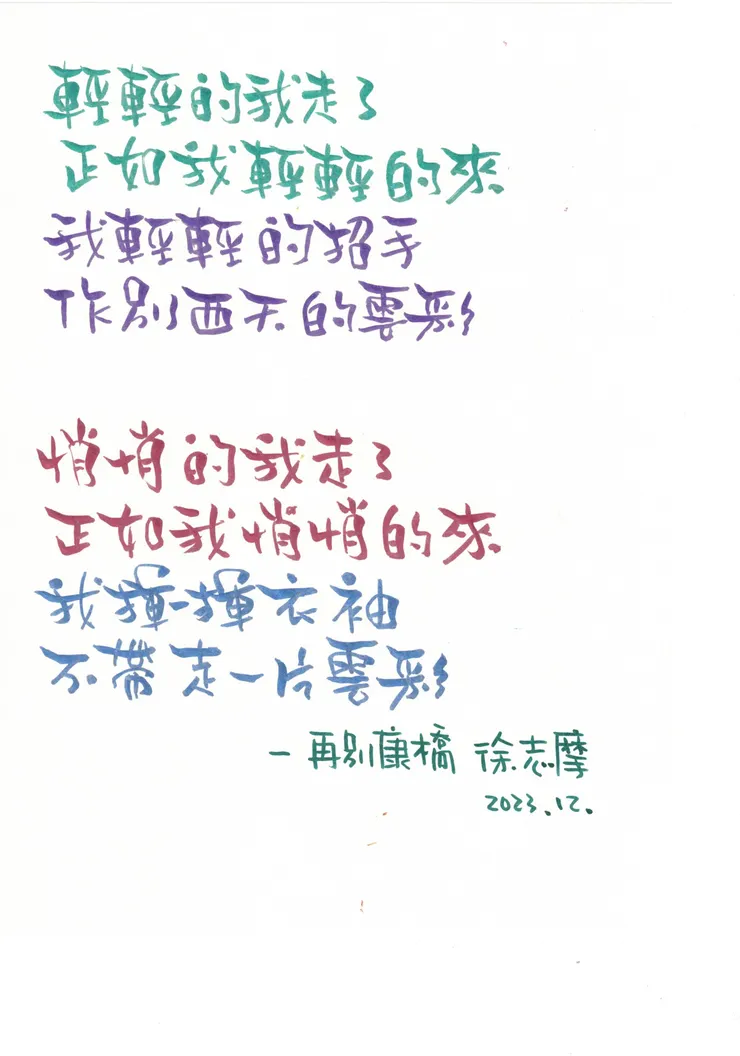 輕輕的我走了
正如我輕輕的來
我輕輕的招手
作別西天的雲彩
悄悄的我走了
正如我悄悄的來
我揮一揮衣袖
不帶走一片雲彩
一再別康橋 徐志摩
2023.12.